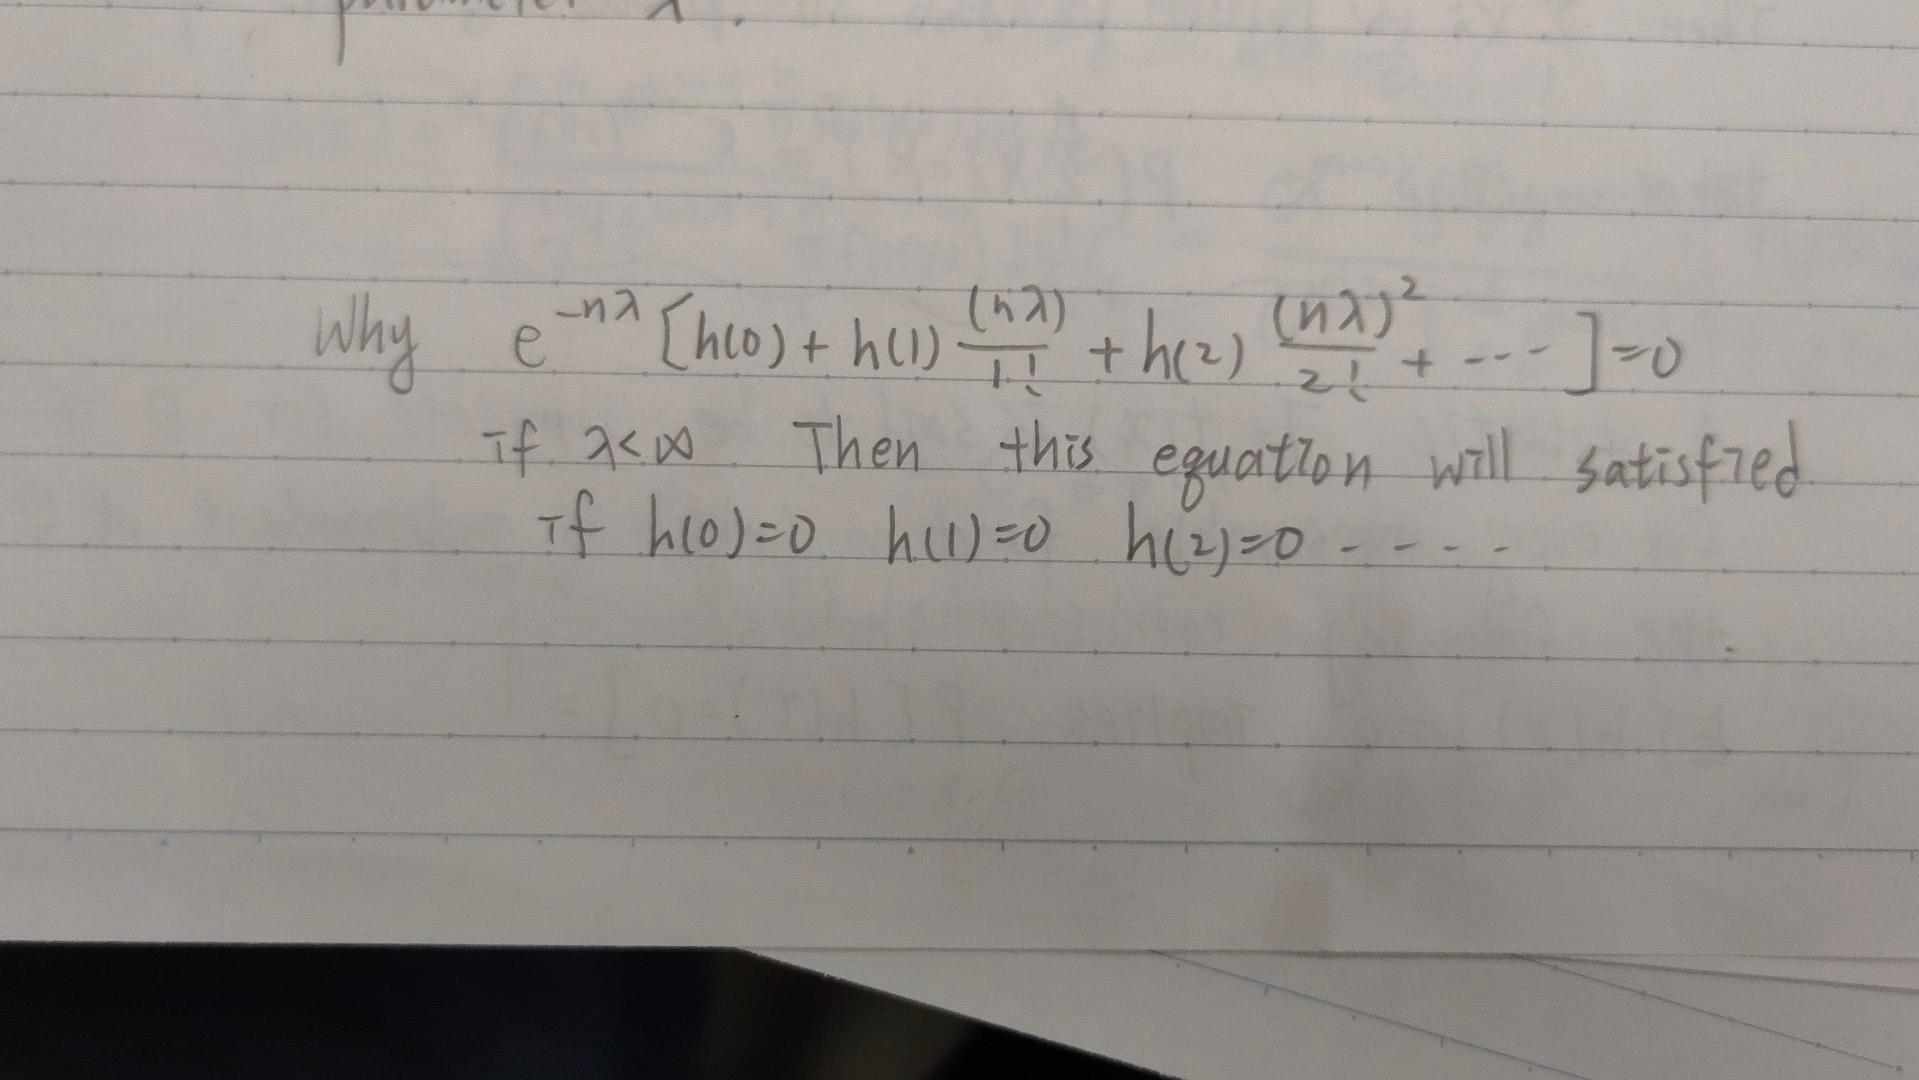 parameter λ.
Why e^{-nλ} [h(0) + h(1) \frac{(nλ)}{1!} + h(2) \frac{(nλ)^2}{2!} + ---- ] = 0
if λ < ∞ Then this equation will satisfied
if h(0)=0 h(1)=0 h(2)=0 - - - -